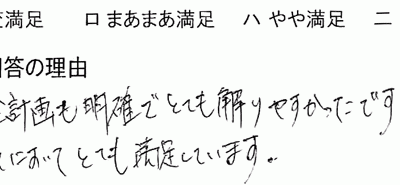 満足　ロ まあまあ満足　ハ やや満足　ニ
答の理由
計画も明確でとても解りやすかったです
において とても満足しています。